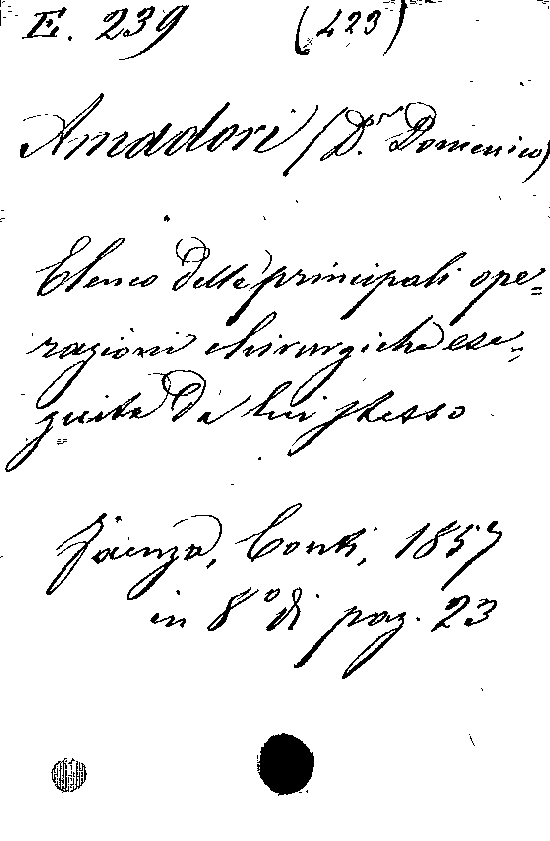 E. 239 (423)
Amadori (D.r Domenico)
Elenco delle principali ope=
razioni chirurgiche ese=
guite da lui stesso
Faenza, Conti, 1857
in 8° di pag. 23